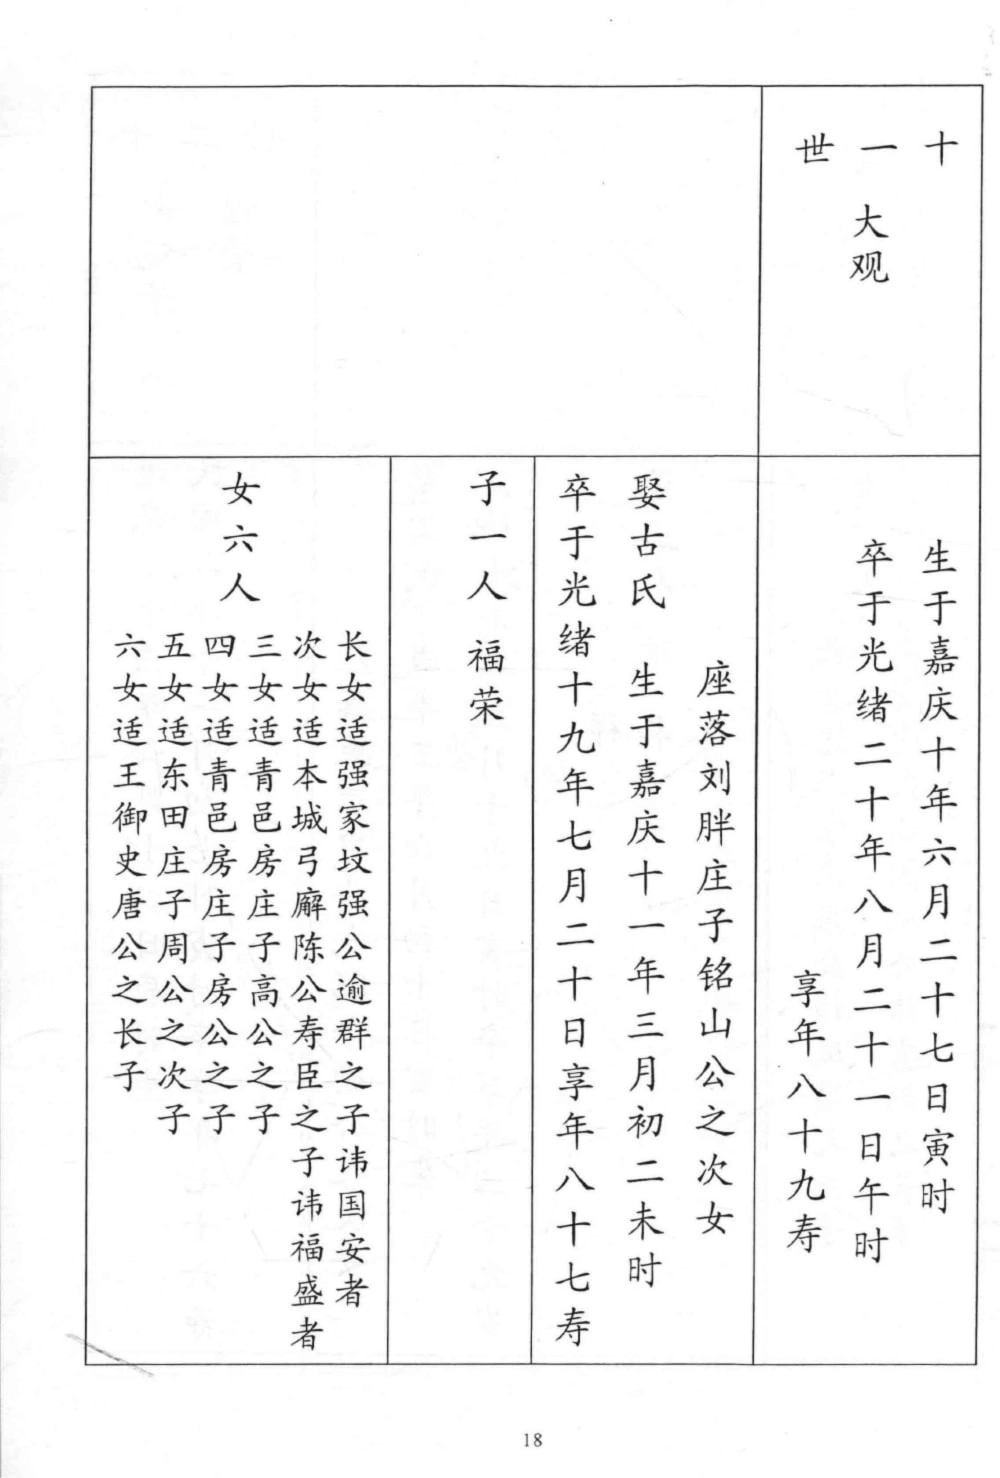 十一世
大观
生于嘉庆十年六月二十七日寅时
卒于光绪二十年八月二十一日午时
享年八十九寿
座落刘胖庄子铭山公之次女
娶古氏 生于嘉庆十一年三月初二未时
卒于光绪十九年七月二十日享年八十七寿
子一人 福荣
女六人
长女适强家坟强公逾群之子讳国安者
次女适本城弓廨陈公寿臣之子讳福盛者
三女适青邑房庄子高公之子
四女适青邑房庄子房公之子
五女适东田庄子周公之次子
六女适王御史唐公之长子
18